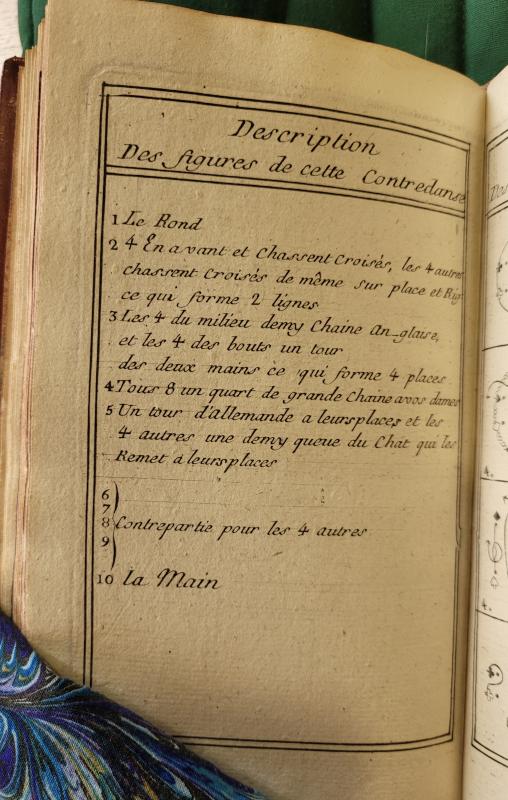 Description
Des figures de cette Contredanse
1 Le Rond
2 4 En avant et Chassent Croisés, les 4 autres
chassent Croisés de même sur place et Rig
ce qui forme 2 lignes
3 Les 4 du milieu demy Chaine An-glaise,
et les 4 des bouts un tour
des deux mains ce qui forme 4 places
4 Tous 8 un quart de grande Chaine avos dames
5 Un tour d'allemande a leurs places et les
4 autres une demy queue du Chat qui les
Remet a leurs places
6
7
8 Contrepartie pour les 4 autres
9
10 la Main